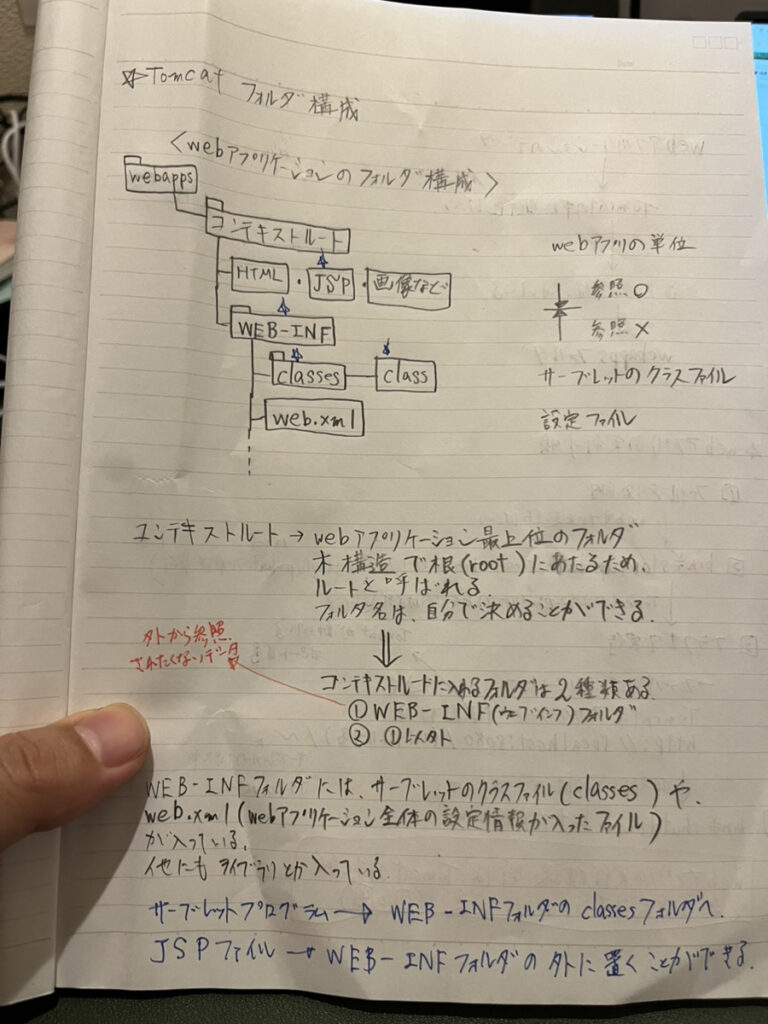 ☆Tomcat フォルダ構成
<webアプリケーションのフォルダ構成>
webapps
コンテキストルート
webアプリの単位
HTML ・ JSP ・ 画像など
参照○
WEB-INF
参照×
classes class
サーブレットのクラスファイル
web.xml
設定ファイル
コンテキストルート → webアプリケーション最上位のフォルダ
木構造で根(root)にあたるため、
ルートと呼ばれる。
フォルダ名は、自分で決めることができる。
外から参照
されたくないデータ
コンテキストルートに入れるフォルダは2種類ある。
① WEB-INF(ウェブインフ)フォルダ
② ①以外
WEB-INFフォルダには、サーブレットのクラスファイル(classes)や、
web.xml(webアプリケーション全体の設定情報が入ったファイル)
が入っている。
他にもライブラリとか入っている。
サーブレットプログラム → WEB-INFフォルダの classesフォルダへ。
JSPファイル → WEB-INFフォルダの外に置くことができる。